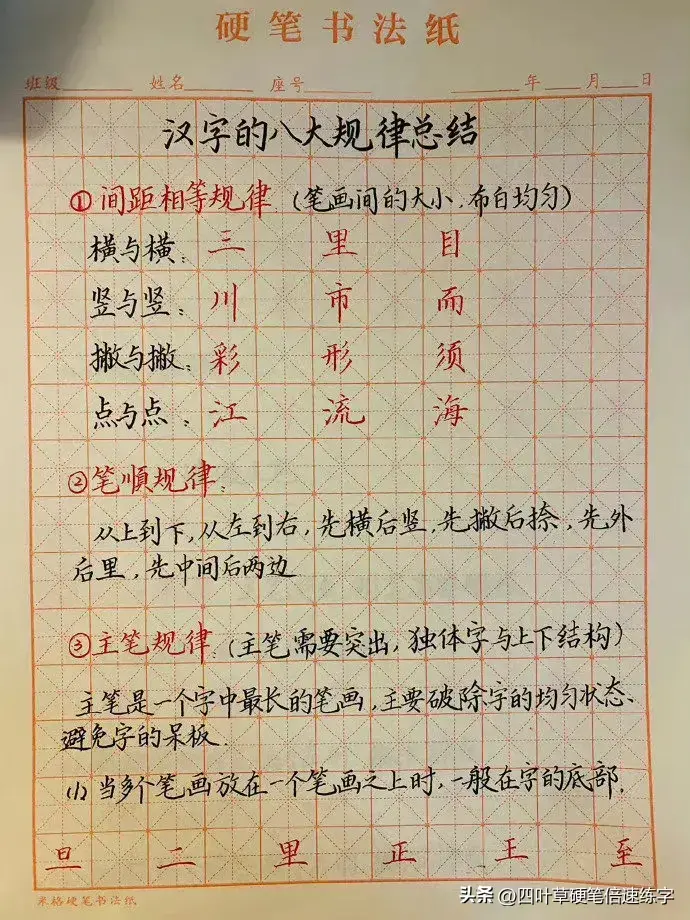 硬笔书法纸
班级 姓名 座号 年 月 日
汉字的八大规律总结
①间距相等规律（笔画间的大小，布白均匀）
横与横：三 里 目
竖与竖：川 市 而
撇与撇：彩 形 须
点与点：江 流 海
②笔顺规律：
从上到下，从左到右，先横后竖，先撇后捺，先外
后里，先中间后两边
③主笔规律：（主笔需要突出，独体字与上下结构）
主笔是一个字中最长的笔画，主要破除字的均匀状态、
避免字的呆板.
(1)当多个笔画放在一个笔画之上时，一般在字的底部.
旦 二 里 正 王 至
米格硬笔书法纸
头条 @四叶草硬笔倍速练字